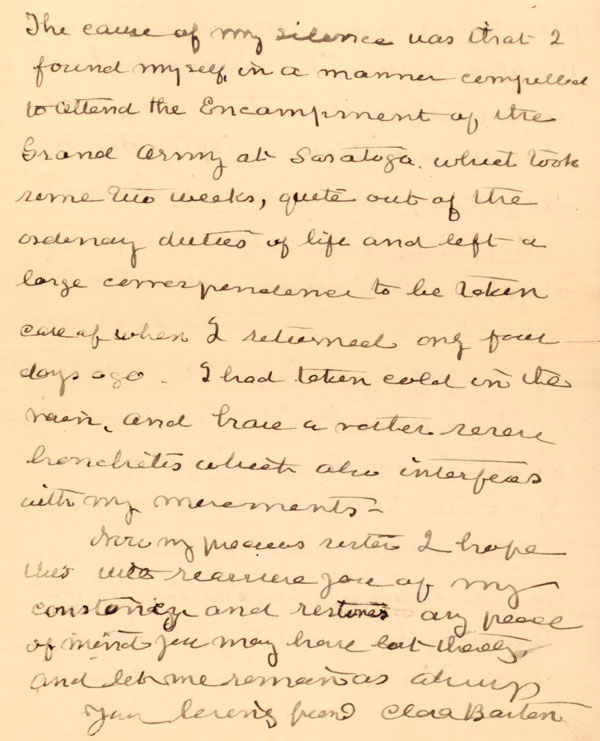 The cause of my silence was that I
found myself, in a manner compelled
to attend the Encampment of the
Grand Army at Saratoga. which took
some two weeks, quite out of the
ordinary duties of life and left a
large correspondence to be taken
care of when I returned only four
days ago. I had taken cold in the
rain, and have a rather severe
bronchitis which also interferes
with my movements -
Now my precious sister I hope
this will reassure you of my
constancy and restores any peace
of mind you may have lost thereby
and let me remain as always
Your loving friend Clara Barton